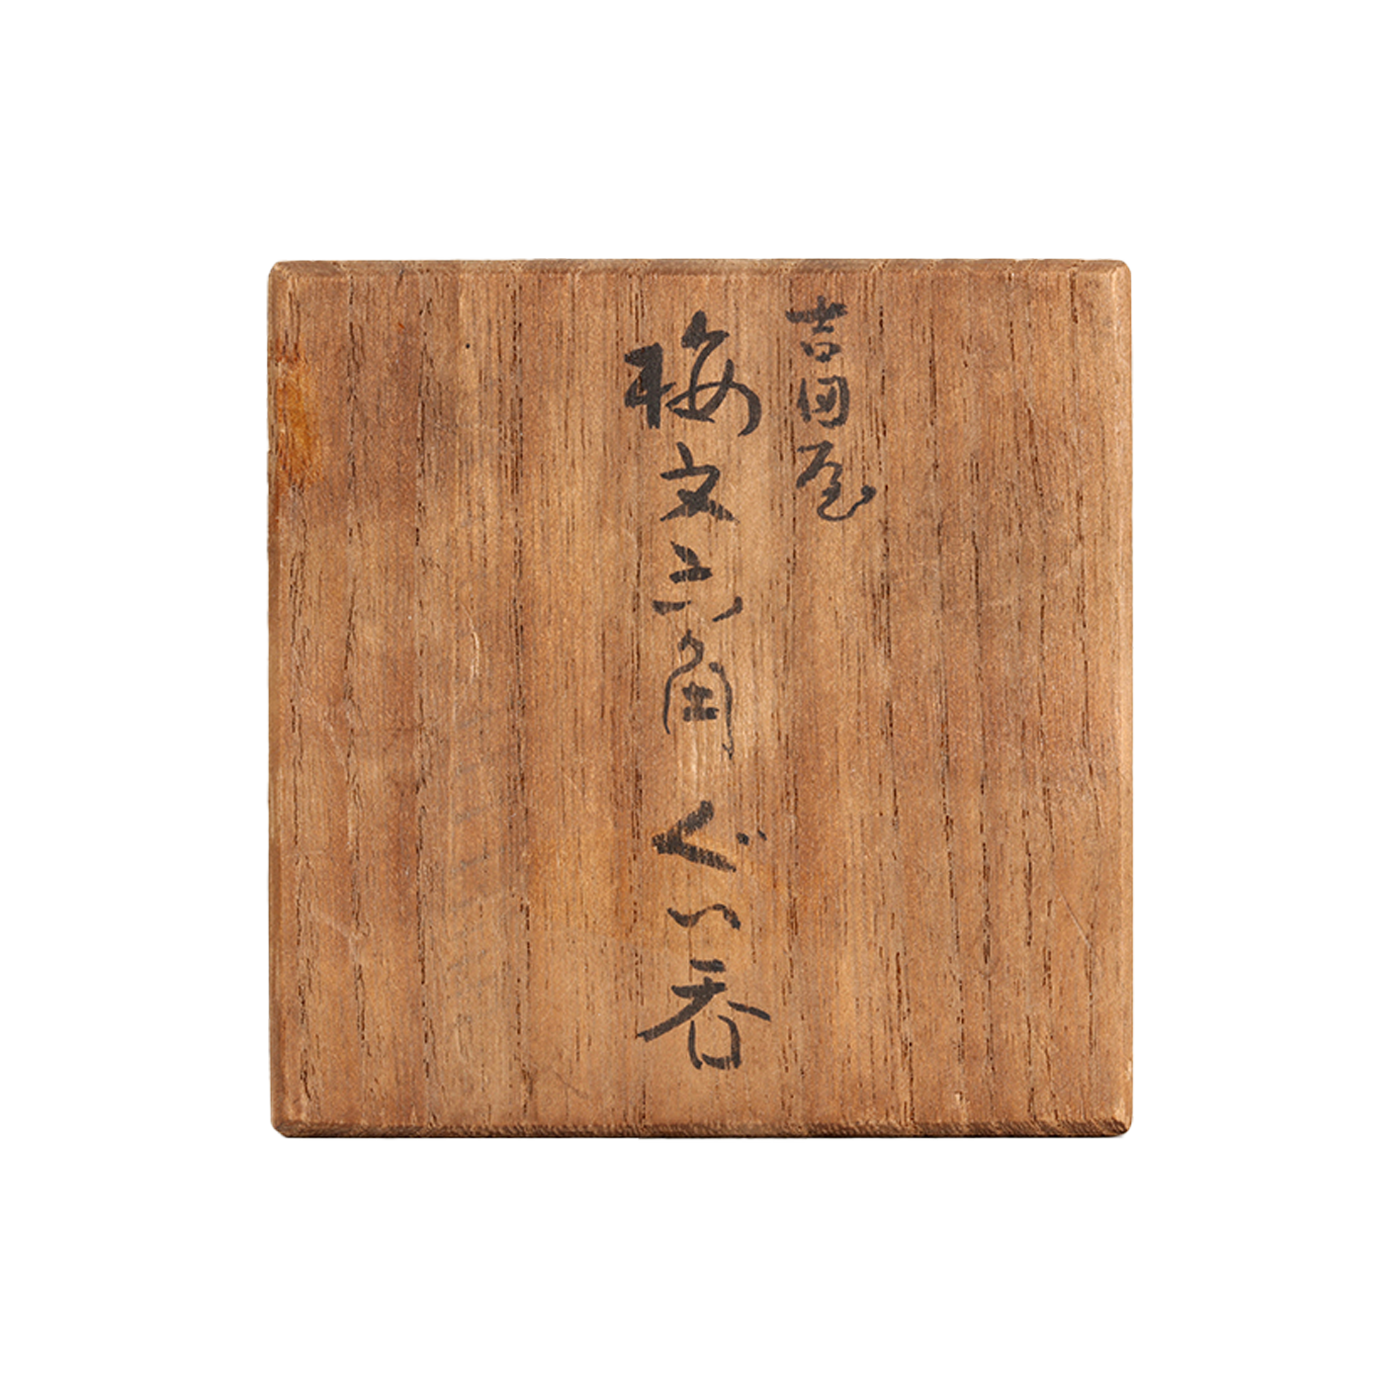 吉田屋
梅文六角ぐい呑